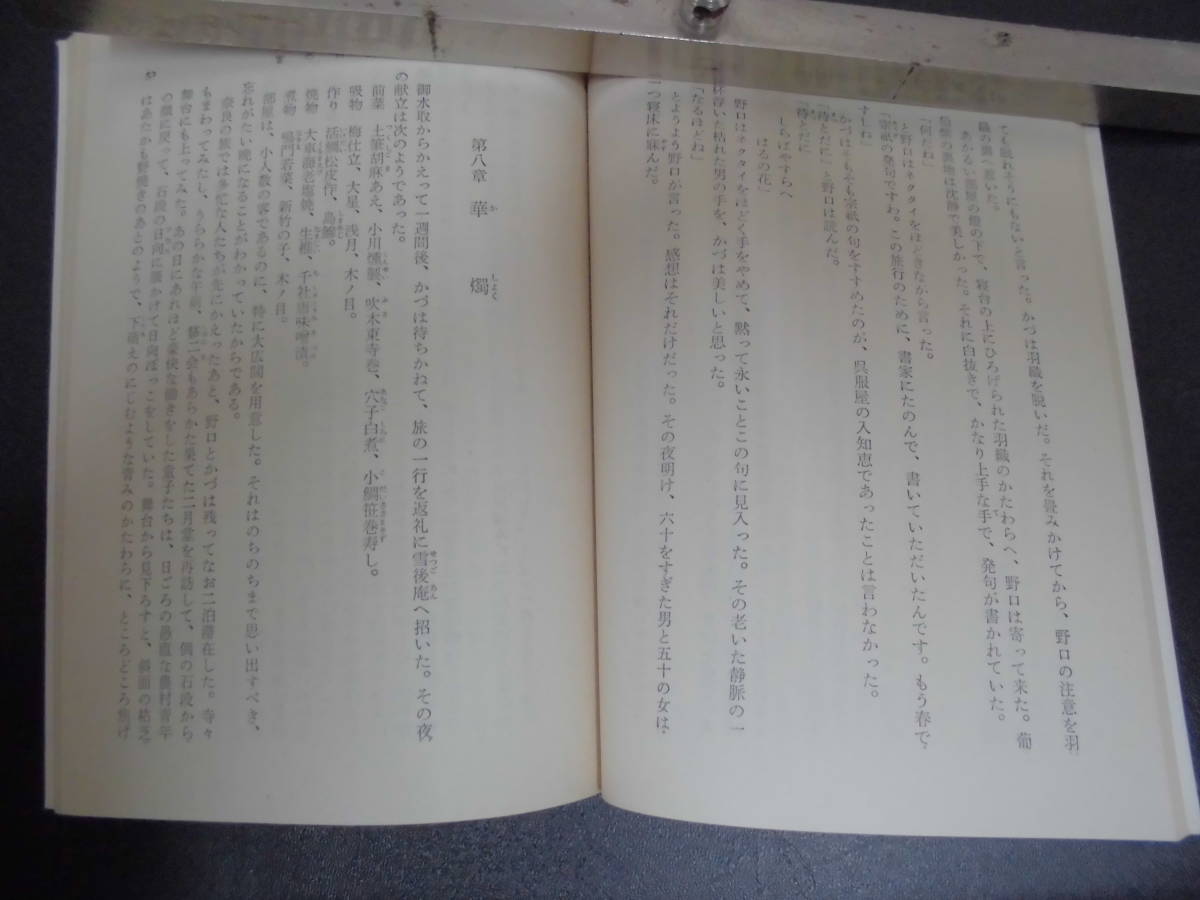 ても眠れそうにもないと言った。かづは羽織を脱いだ。それを畳みかけてから、野口の注意を羽
織の裏へ惹いた。
あかるい部屋の燈の下で、寝台の上にひろげられた羽織のかたわらへ、野口は寄って来た。葡
萄紫の裏地は沈静で美しかった。それに白抜きで、かなり上手な手で、発句が書かれていた。
「何だね」
と野口はネクタイをほどきながら言った。
「宗祇の発句ですわ。この旅行のために、書家にたのんで、書いていただいたんです。もう春で
すしね」
かづはそもそも宗祇の句をすすめたのが、呉服屋の入知恵であったことは言わなかった。
「待とだに」と野口は読んだ。
「待とだに
しらばやすらへ
はるの花」
野口はネクタイをほどく手をやめて、黙って永いことこの句に見入った。その老いた静脈の一
杯浮いた枯れた男の手を、かづは美しいと思った。
「なるほどね」
とようよう野口が言った。感想はそれだけだった。その夜明け、六十をすぎた男と五十の女は、
一つ寝床に寐んだ。
第八章 華燭
御水取からかえって一週間後、かづは待ちかねて、旅の一行を返礼に雪後庵へ招いた。その夜
の献立は次のようであった。
前菜 土筆胡麻あえ、小川燻製、吹木東寺巻、穴子白煮、小鯛笹巻寿し。
吸物 梅仕立、大星、浅月、木ノ目。
作り 活鯛松皮作、島鯵。
焼物 大車海老塩焼、生椎、千社唐味噌漬。
煮物 鳴門若菜、新竹の子、木ノ目。
部屋は、小人数の客であるのに、特に大広間を用意した。それはのちのちまで思い出すべき、
忘れがたい晩になることがわかっていたからである。
奈良の旅では多忙な人たちが先にかえったあと、野口とかづは残ってなお二泊滞在した。寺々
もまわってみたし、うららかな午前、修二会もあらかた果てた二月堂を再訪して、例の石段から
舞台にも上ってみた。あの日にあれほど豪快な働きをした童子たちは、日ごろの愚直な農村青年
の顔に戻って、石段の日向に腰かけて日向ぼっこをしていた。舞台から見下ろすと、斜面の枯芝
はあたかも野焼きのあとのようで、下萌えのにじむような青みのかたわらに、ところどころ焦げ